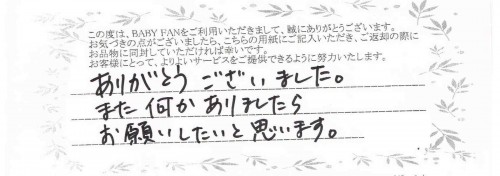 この度は、BABY FANをご利用いただきまして、誠にありがとうございます。
お気づきの点がございましたら、こちらの用紙にご記入いただき、ご返却の際に
お品物に同封していただければ幸いです。
お客様にとって、よりよいサービスをご提供できるように努力いたします。
ありがとうございました。
また何かありましたら
お願いしたいと思います。